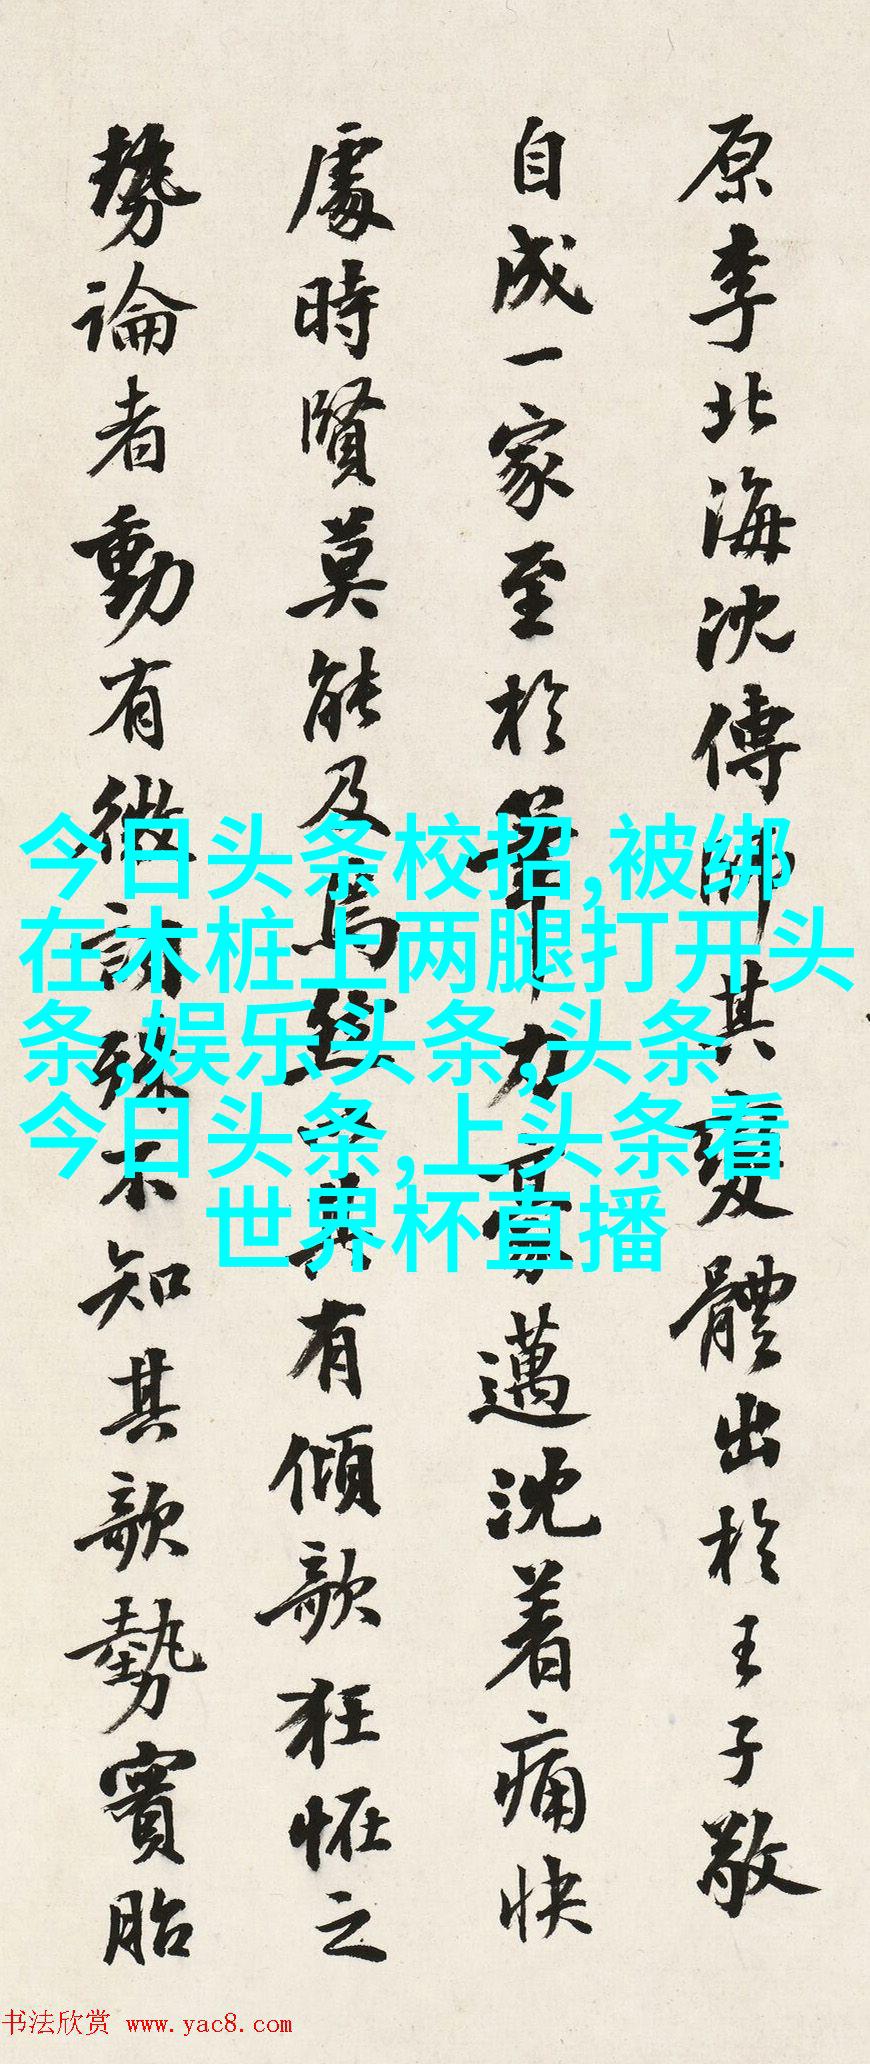 原李北海沈傳師其變體出於王子敬
自成一家至於筆力豪邁沈着痛快
處時賢莫能及焉然其有傾欹狂怪之
勢論者動有微詞殊不知其欹勢實胎
今日头条校招,被绑
在木桩上两腿打开头
条,娱乐头条,头条
今日头条,上头条看
世界杯直播
书法欣赏 www.yac8.com